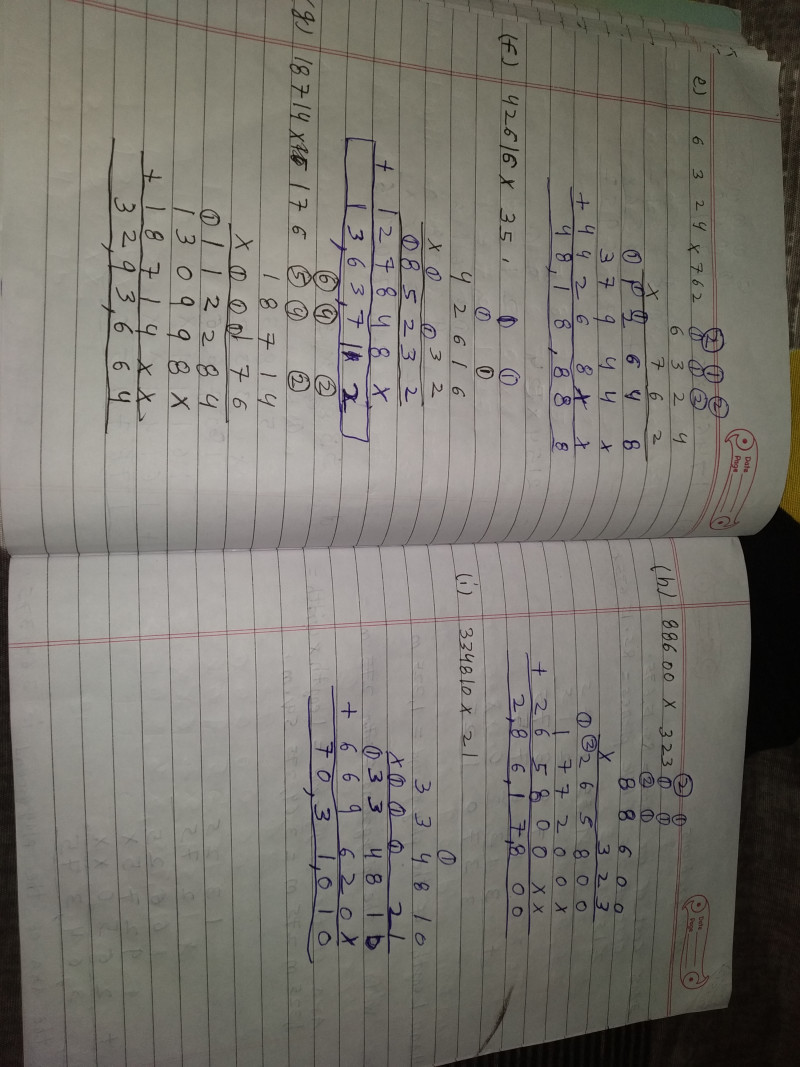 e) 6 3 2 4 x 762
② ① ②
① ① ②
6 3 2 4
x 7 6 2
3 7 9 4 4 x
+ 4 4 2 6 8 x x
4 8, 1 8, 8 8 8
(f) 42616 x 35
① ①
① ①
4 2 6 1 6
x 0 0 3 2
① 8 5 2 3 2
+ 1 2 7 8 4 8 x
1 3, 6 3, 7 1 2
(g) 18714 x 176
⑥ ④ ②
⑤ ④ ②
1 8 7 1 4
x 0 0 1 7 6
① 1 1 2 2 8 4
1 3 0 9 9 8 x
+ 1 8 7 1 4 x x
3 2, 9 3, 6 6 4
Date
Page
(h) 88600 x 323
② ①
① ①
② ①
8 8 6 0 0
x 3 2 3
① ② 2 6 5 8 0 0
1 7 7 2 0 0 x
+ 2 6 5 8 0 0 x x
2, 8 6, 1 7, 8 0 0
(i) 334810 x 21
①
3 3 4 8 1 0
x 0 0 0 2 1
① 3 3 4 8 1 0
+ 6 6 9 6 2 0 x
7 0, 3 1, 0 1 0
Date
Page